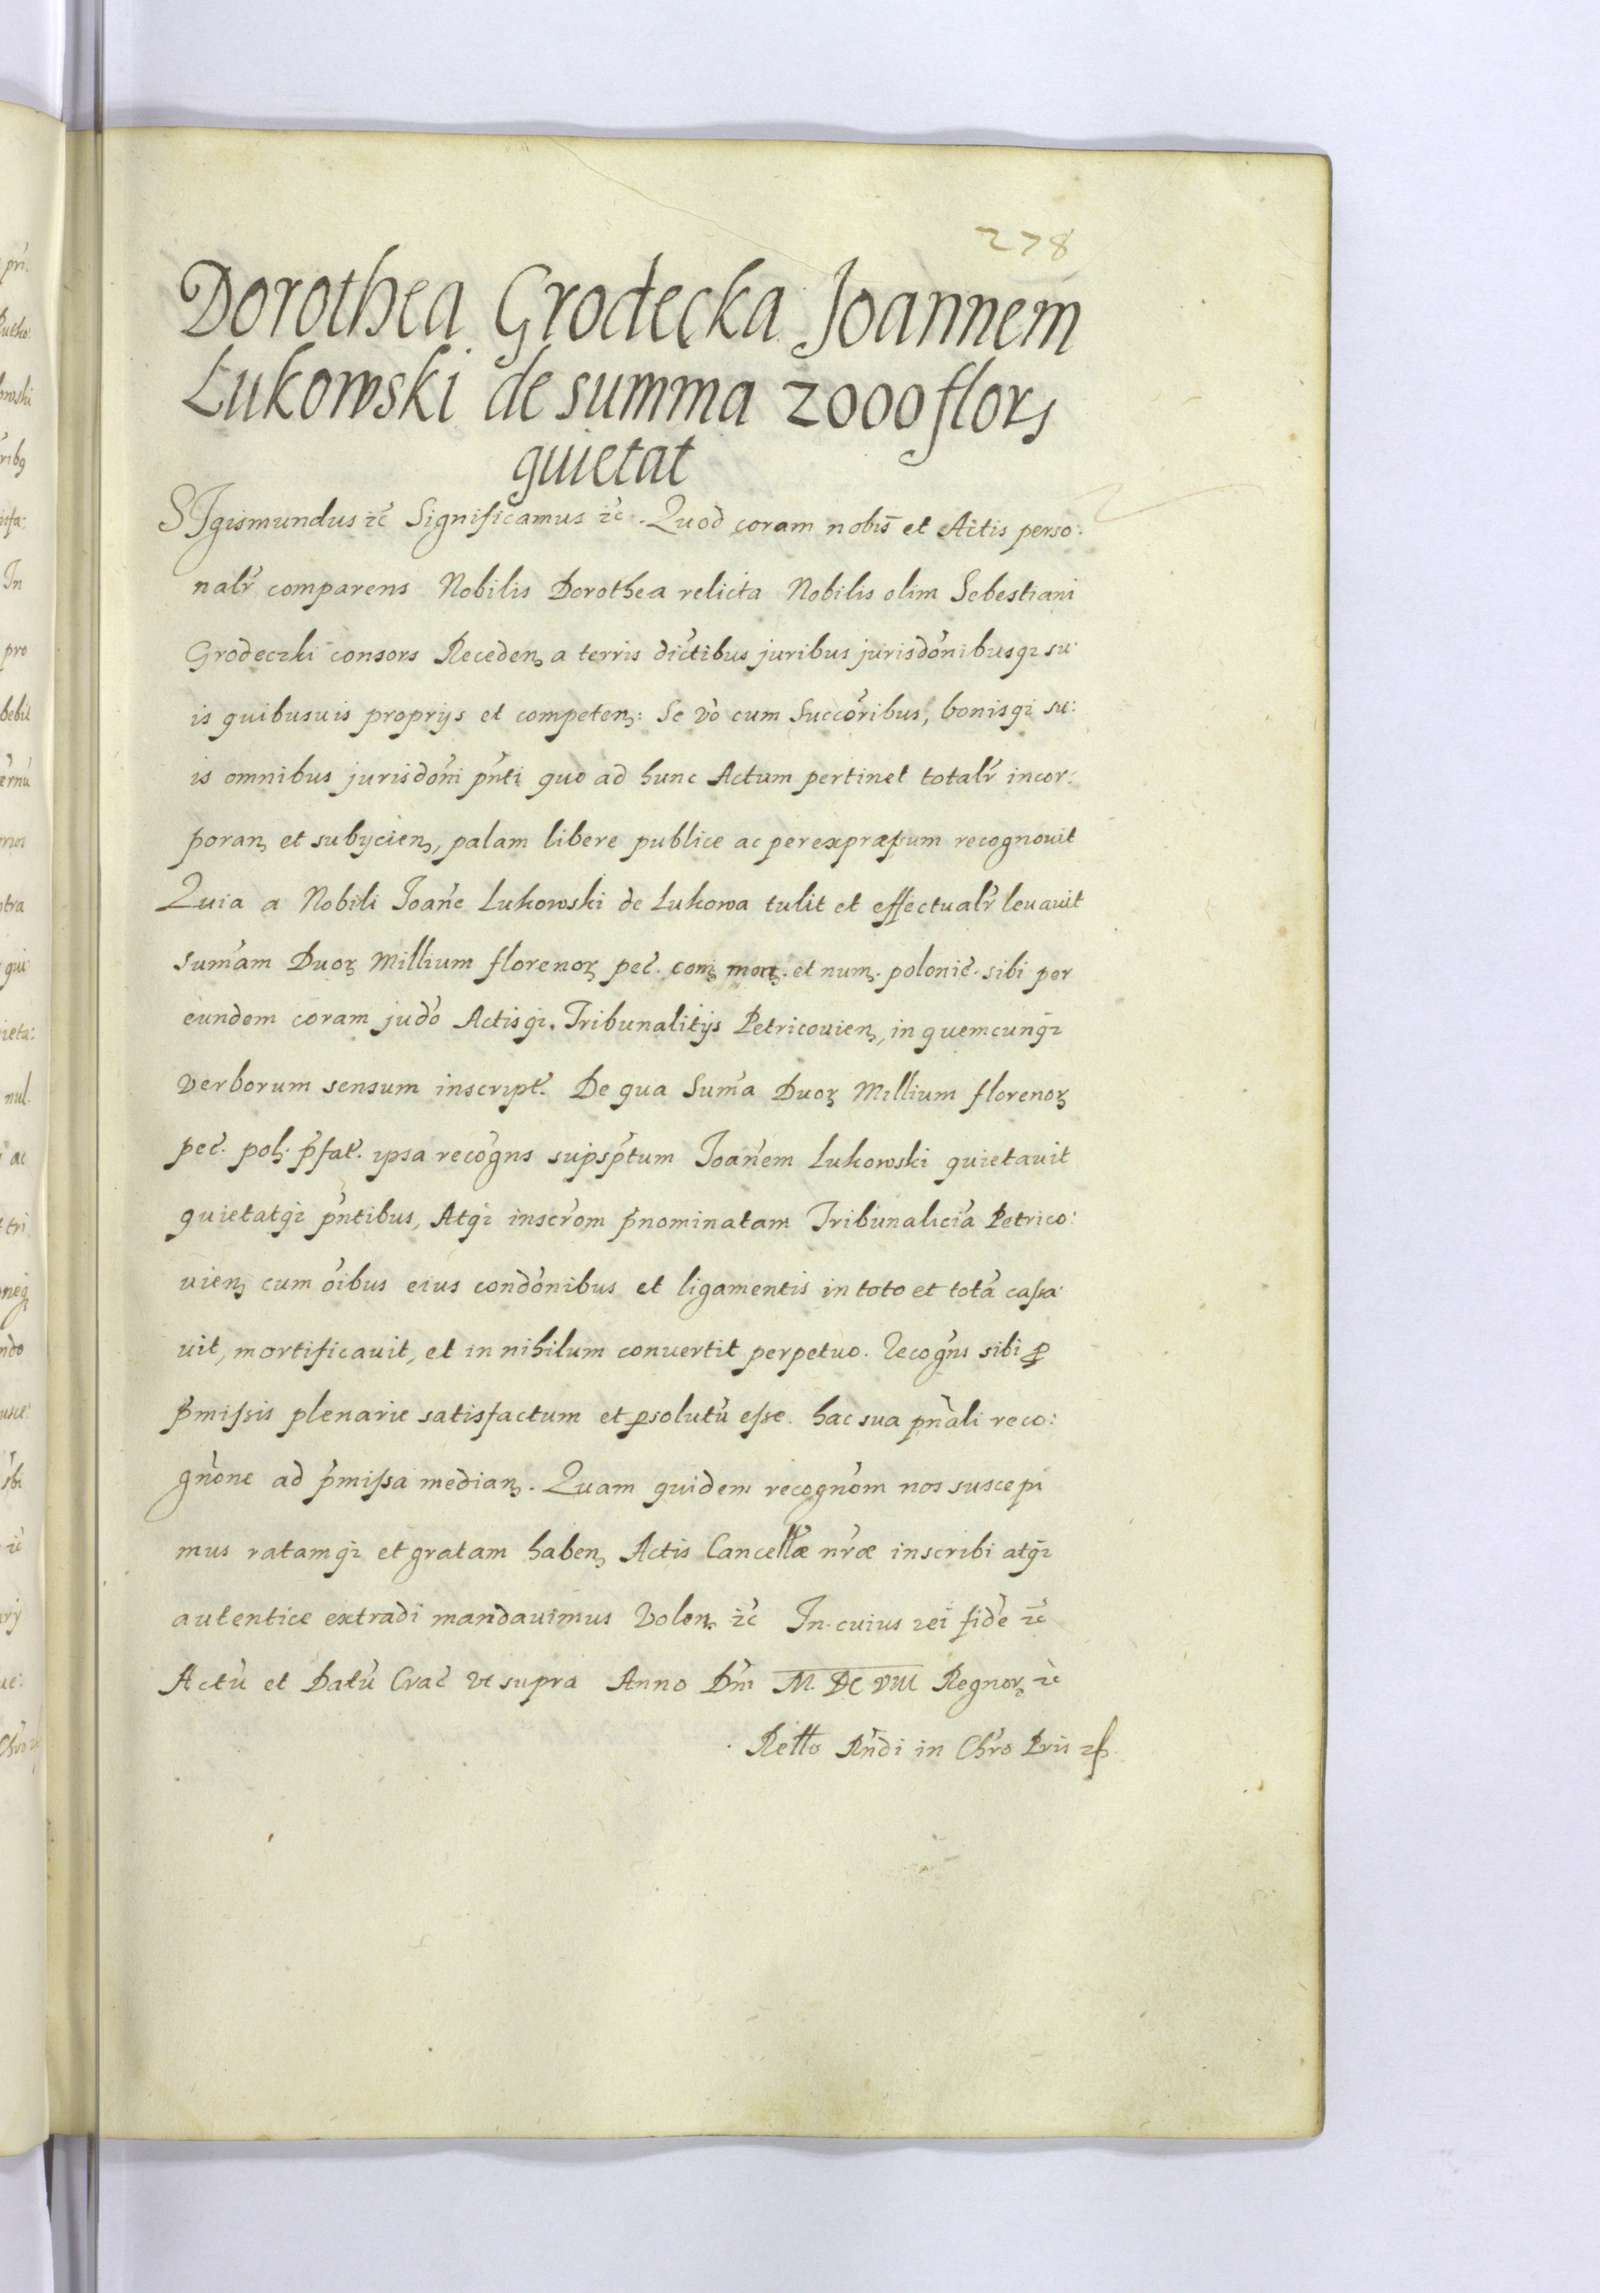 278
Dorothea Grodecka Joannem
Łukowski de summa 2000 flors
quietat
SIgismundus ꝛc̃ Significamus ꝛc̃. Quod coram nobis et Actis perso:
nalr̃ comparens Nobilis Dorothea relicta Nobilis olim Sebestiani
Grodeczki consors Recedenꝫ a terris dictibus juribus jurisdõnibusqꝫ su:
is quibusuis proprijs et competenꝫ: Se võ cum Succõribus, bonisqꝫ su:
is omnibus jurisdõni pñti quo ad hunc Actum pertinet totalr̃ incor:
poranꝫ et subijcienꝫ, palam libere publice ac per expræssum recognouit
Quia a Nobili Joañe Lukowski de Lukowa tulit et effectualr̃ leuauit
sum̃am Duoꝝ Millium florenoꝝ pec̃. comꝫ monꝫ. et numꝫ. polonic̃. sibi per
eundem coram judõ Actisqꝫ. Tribunalitijs Petricouienꝫ, in quemcunqꝫ
verborum sensum inscript̃. De qua Sum̃a Duoꝝ Millium florenoꝝ
pec̃. polꝫ. p̃fat̃. ipsa recõgns supsp̃tum Joañem Lukowski quietauit
quietatqꝫ pñtibus, Atqꝫ inscr̃om p̃nominatam Tribunalicia Petrico:
uienꝫ cum õibus eius condõnibus et ligamentis in toto et tota cassa:
uit, mortificauit, et in nihilum conuertit perpetuo. Recogñs sibi ꝓ
p̃missis plenarie satisfactum et ꝑsolutũ esse. hac sua pñali reco:
gñone ad p̃missa medianꝫ. Quam quidem recogñom nos suscepi
mus ratamqꝫ et gratam habenꝫ Actis Cancellæ nr̃æ inscribi atqꝫ
autentice extradi mandauimus Volenꝫ ꝛc̃ In cuius rei fidẽ ꝛc̃
Actũ et Datũ Crac̃ vt supra Anno Dñi M. DC VIII Regnoꝝ ꝛc̃
Rello Rñdi in Chr̃o Pr̃is